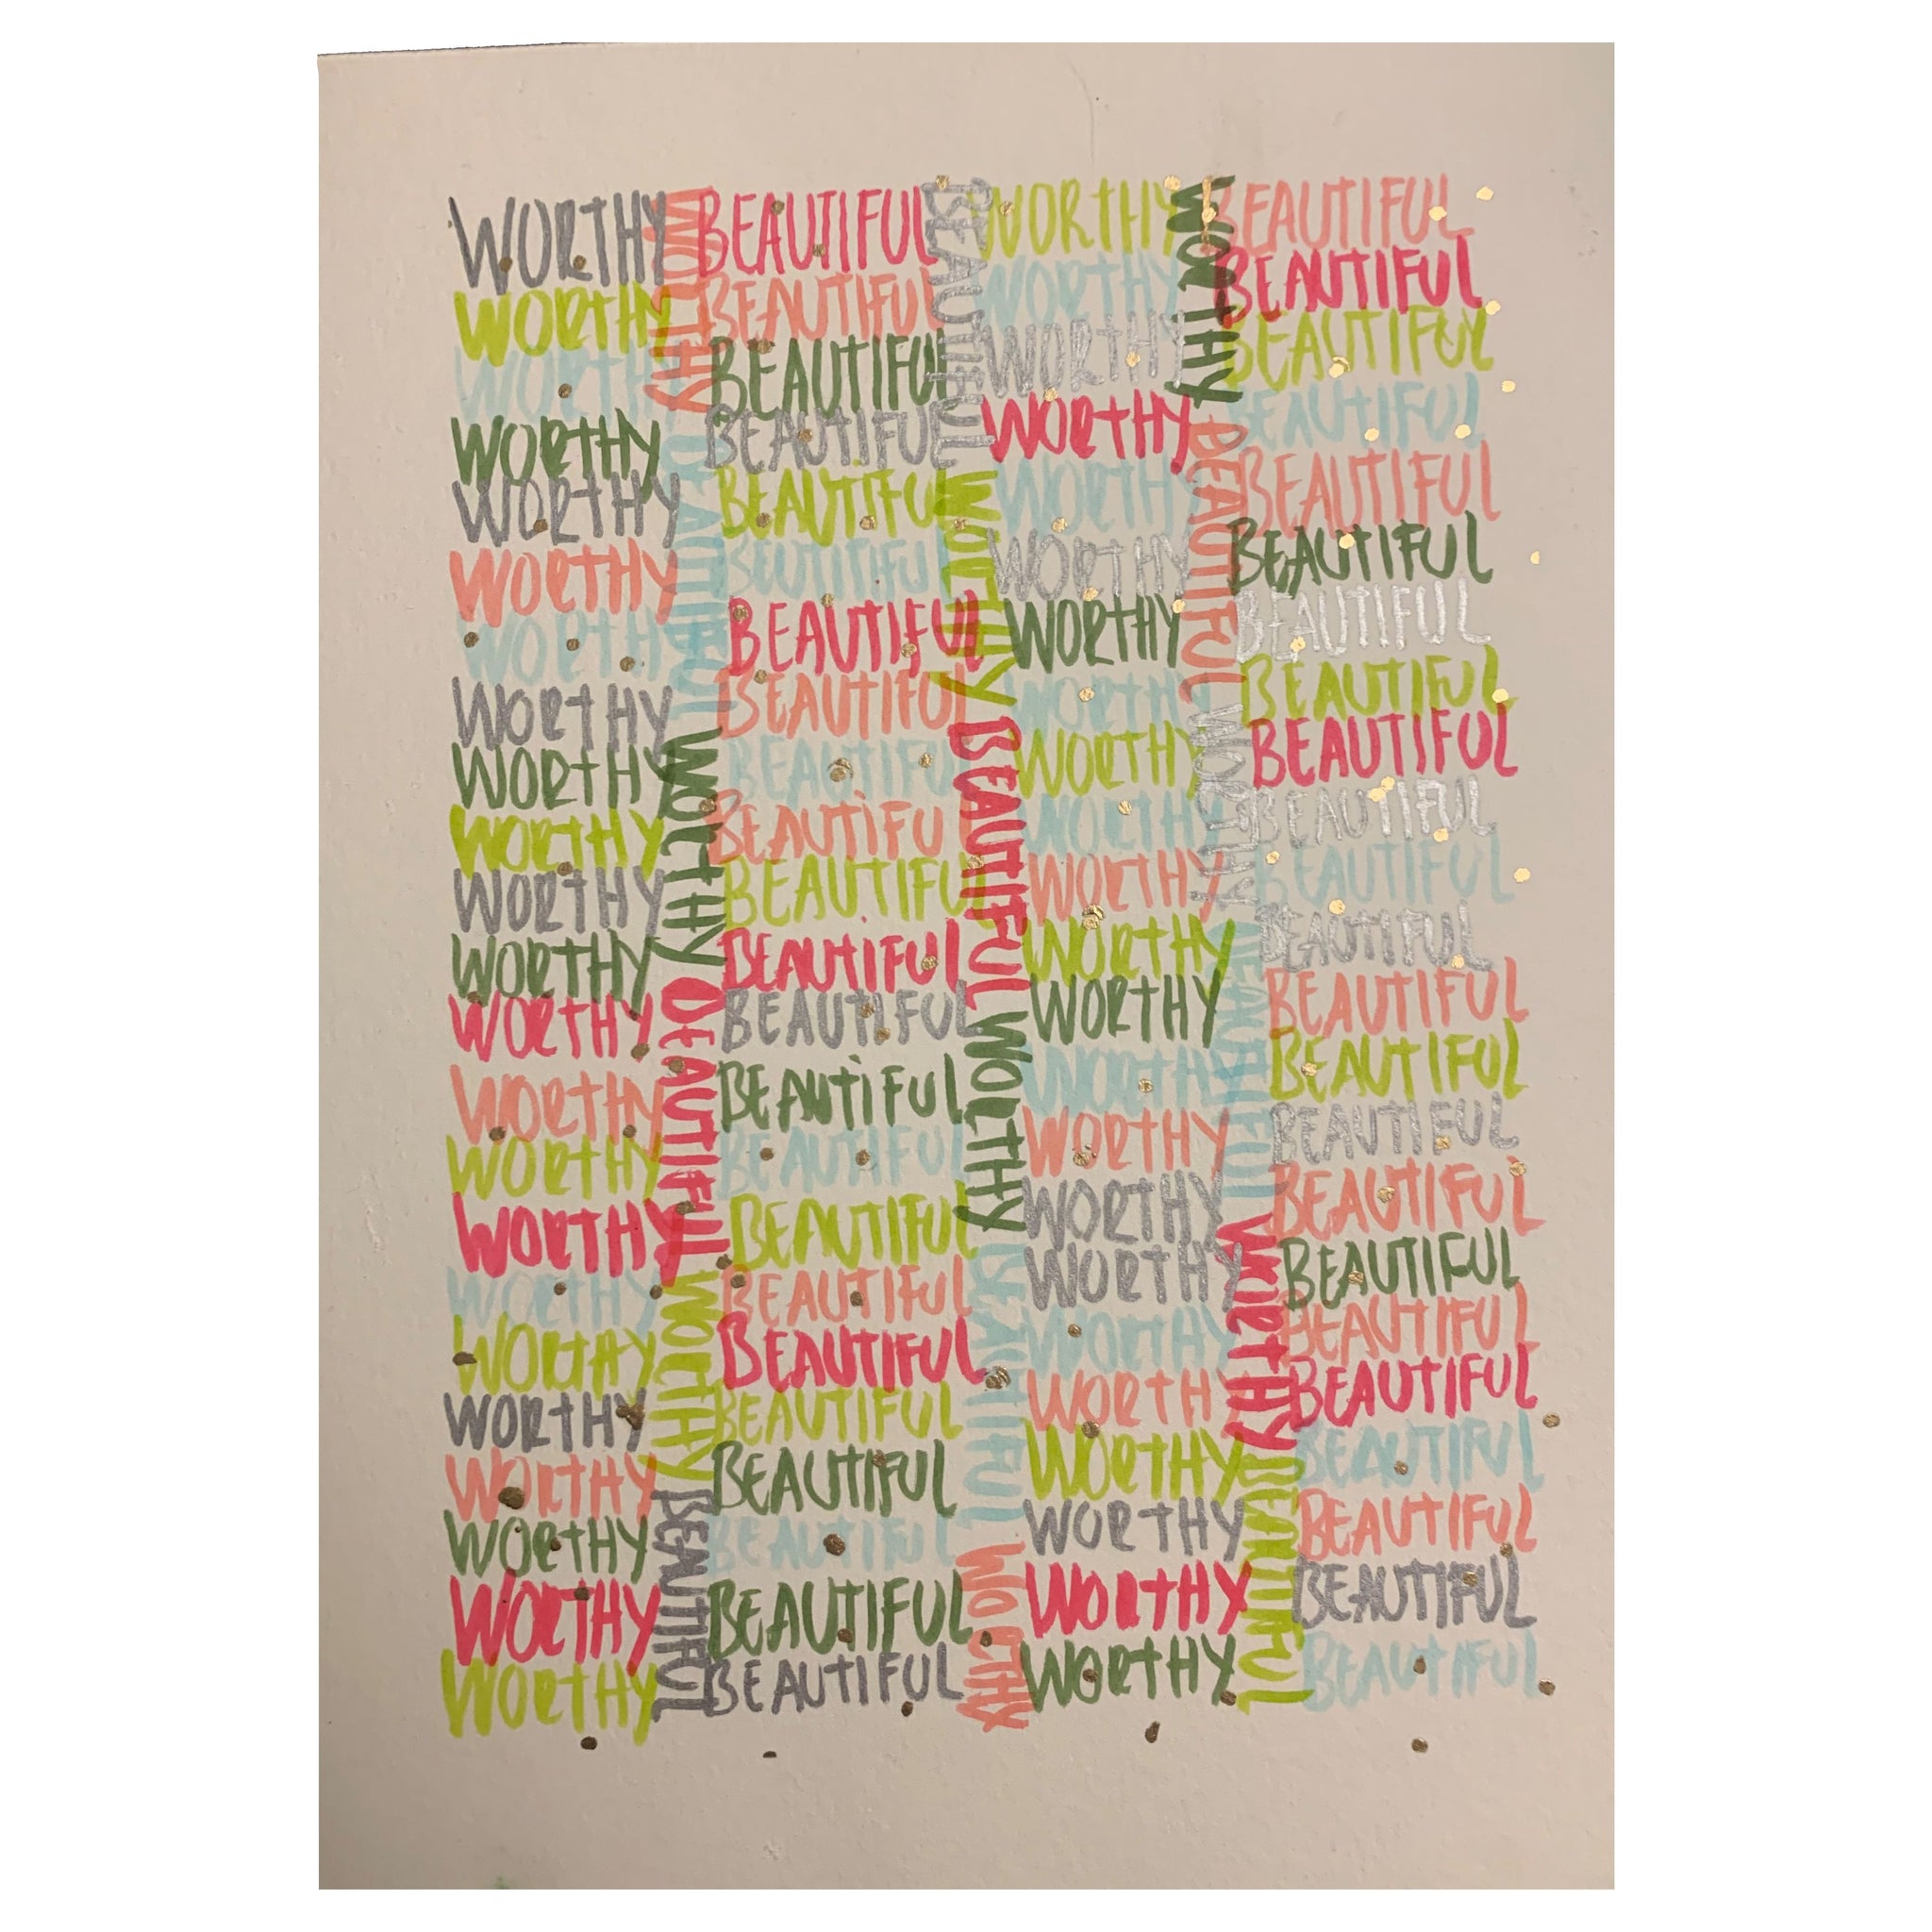 WORTHY
WORTHY
WORTHY
WORTHY
WORTHY
WORTHY
WORTHY
WORTHY
WORTHY
WORTHY
WORTHY
WORTHY
WORTHY
WORTHY
WORTHY
WORTHY
WORTHY
WORTHY
WORTHY
WORTHY
WORTHY
WORTHY
WORTHY
WORTHY BEAUTIFUL WORTHY BEAUTIFUL WORTHY BEAUTIFUL
BEAUTIFUL
BEAUTIFUL
BEAUTIFUL
BEAUTIFUL
BEAUTIFUL
BEAUTIFUL
BEAUTIFUL
BEAUTIFUL
BEAUTIFUL
BEAUTIFUL
BEAUTIFUL
BEAUTIFUL
BEAUTIFUL
BEAUTIFUL
BEAUTIFUL
BEAUTIFUL
BEAUTIFUL
BEAUTIFUL
BEAUTIFUL
BEAUTIFUL
BEAUTIFUL
BEAUTIFUL
BEAUTIFUL
BEAUTIFUL WORTHY BEAUTIFUL WORTHY BEAUTIFUL WORTHY
WORTHY
WORTHY
WORTHY
WORTHY
WORTHY
WORTHY
WORTHY
WORTHY
WORTHY
WORTHY
WORTHY
WORTHY
WORTHY
WORTHY
WORTHY
WORTHY
WORTHY
WORTHY
WORTHY
WORTHY
WORTHY
WORTHY
WORTHY
WORTHY BEAUTIFUL WORTHY BEAUTIFUL WORTHY BEAUTIFUL
BEAUTIFUL
BEAUTIFUL
BEAUTIFUL
BEAUTIFUL
BEAUTIFUL
BEAUTIFUL
BEAUTIFUL
BEAUTIFUL
BEAUTIFUL
BEAUTIFUL
BEAUTIFUL
BEAUTIFUL
BEAUTIFUL
BEAUTIFUL
BEAUTIFUL
BEAUTIFUL
BEAUTIFUL
BEAUTIFUL
BEAUTIFUL
BEAUTIFUL
BEAUTIFUL
BEAUTIFUL
BEAUTIFUL